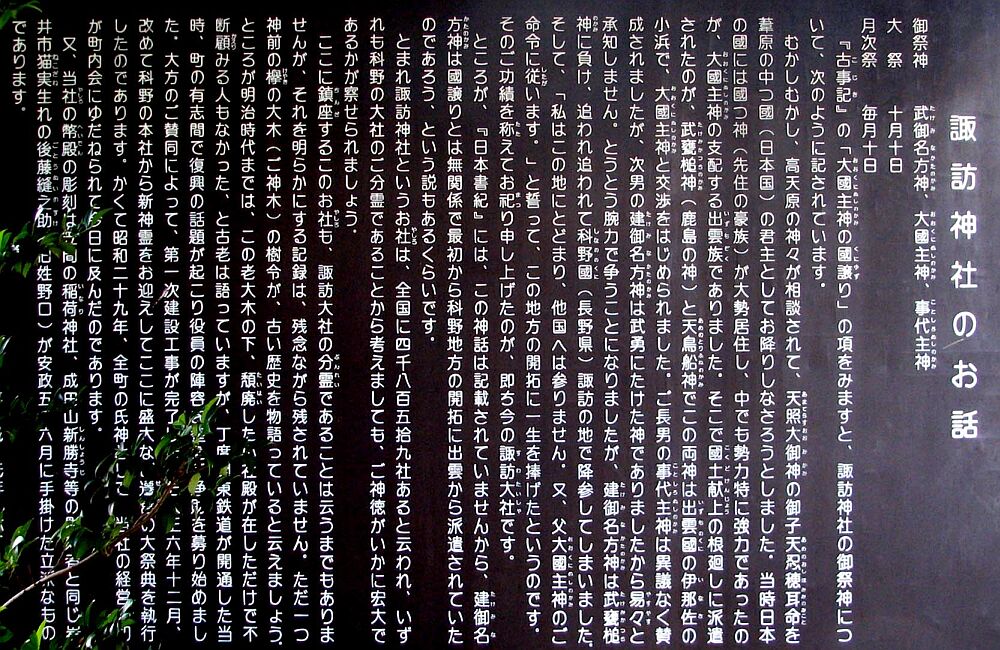 諏訪神社のお話
御祭神　武御名方神、大國主神、事代主神
大　祭　十月十日
月次祭　毎月十日
『古事記』の「大國主神の國譲り」の項をみますと、諏訪神社の御祭神につ
いて、次のように記されています。
むかしむかし、高天原の神々が相談されて、天照大御神の御子天忍穂耳命を
葦原の中つ國（日本国）の君主としてお降りしなさろうとしました。当時日本
の國には國つ神（先住の豪族）が大勢居住し、中でも勢力特に強力であったの
が、大國主神の支配する出雲族でありました。そこで國土献上の根廻しに派遣
されたのが、武甕槌神（鹿島の神）と天鳥船神でこの両神は出雲國の伊那佐の
小浜で、大國主神と交渉をはじめられました。ご長男の事代主神は異議なく賛
成されましたが、次男の建御名方神は武勇にたけた神でありましたから易々と
承知しません。とうとう腕力で争うことになりましたが、建御名方神は武甕槌
神に負け、追われ追われて科野國（長野県）諏訪の地で降参してしまいました。
そして、「私はこの地にとどまり、他国へは参りません。又、父大國主神のご
命令に従います。」と誓って、この地方の開拓に一生を捧げたというのです。
そのご功績を称えてお祀り申し上げたのが、即ち今の諏訪大社です。
ところが、『日本書紀』には、この神話は記載されていませんから、建御名
方神は國譲りとは無関係で最初から科野地方の開拓に出雲から派遣されていた
のであろう、という説もあるくらいです。
とまれ諏訪神社というお社は、全国に四千八百五拾九社あると云われ、いず
れも科野の大社のご分霊であることから考えましても、ご神徳がいかに宏大で
あるかが察せられましょう。
ここに鎮座するこのお社も、諏訪大社の分霊であることは云うまでもありま
せんが、それを明らかにする記録は、残念ながら残されていません。ただ一つ
神前の欅の大木（ご神木）の樹令が、古い歴史を物語っていると云えましょう。
ところが明治時代までは、この老大木の下、頽廃した小社殿が在しただけで不
断顧みる人もなかった、と古老は語っていますが、丁度東鉄道が開通した当
時、町の有志間で復興の話題が起こり役員の陣容を募り始めまし
た。大方のご賛同によって、第一次建設工事が完了六年十二月、
改めて科野の本社から新神霊をお迎えしてここに盛大な大祭典を執行
したのであります。かくて昭和二十九年、全町の氏神として当社の経営
が町内会にゆだねられて今日に及んだのであります。
又、当社の幣殿の彫刻は間の稲荷神社、成田山新勝寺等のと同じ
井市猫実生れの後藤縫之助（旧姓野口）が安政五六月に手掛けた立派なもの
であります。